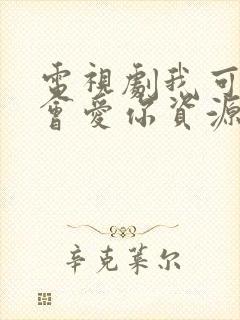 電視劇我可
會愛你資源
辛克莱尔